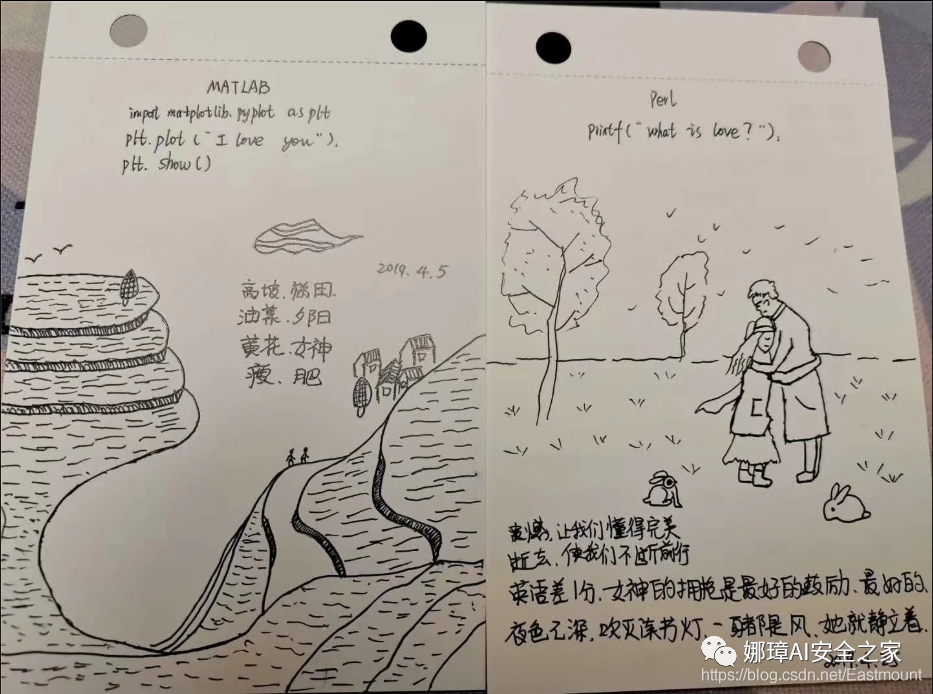 MATLAB
import matplotlib.pyplot as plt
plt.plot("I love you"),
plt. show()
2019. 4. 5
高坡、梯田
油菜、夕阳
黄花、女神
瘦、肥
Perl
printf("what is love?"),
让我们懂得完美
逝去、使我们不断前行
英语差1分、女神的拥抱是最好的鼓励、最好的
夜色已深、吹灭读书灯、一 都是风、她就静立着
娜璋AI安全之家
https://blog.csdn.net/Eastmount